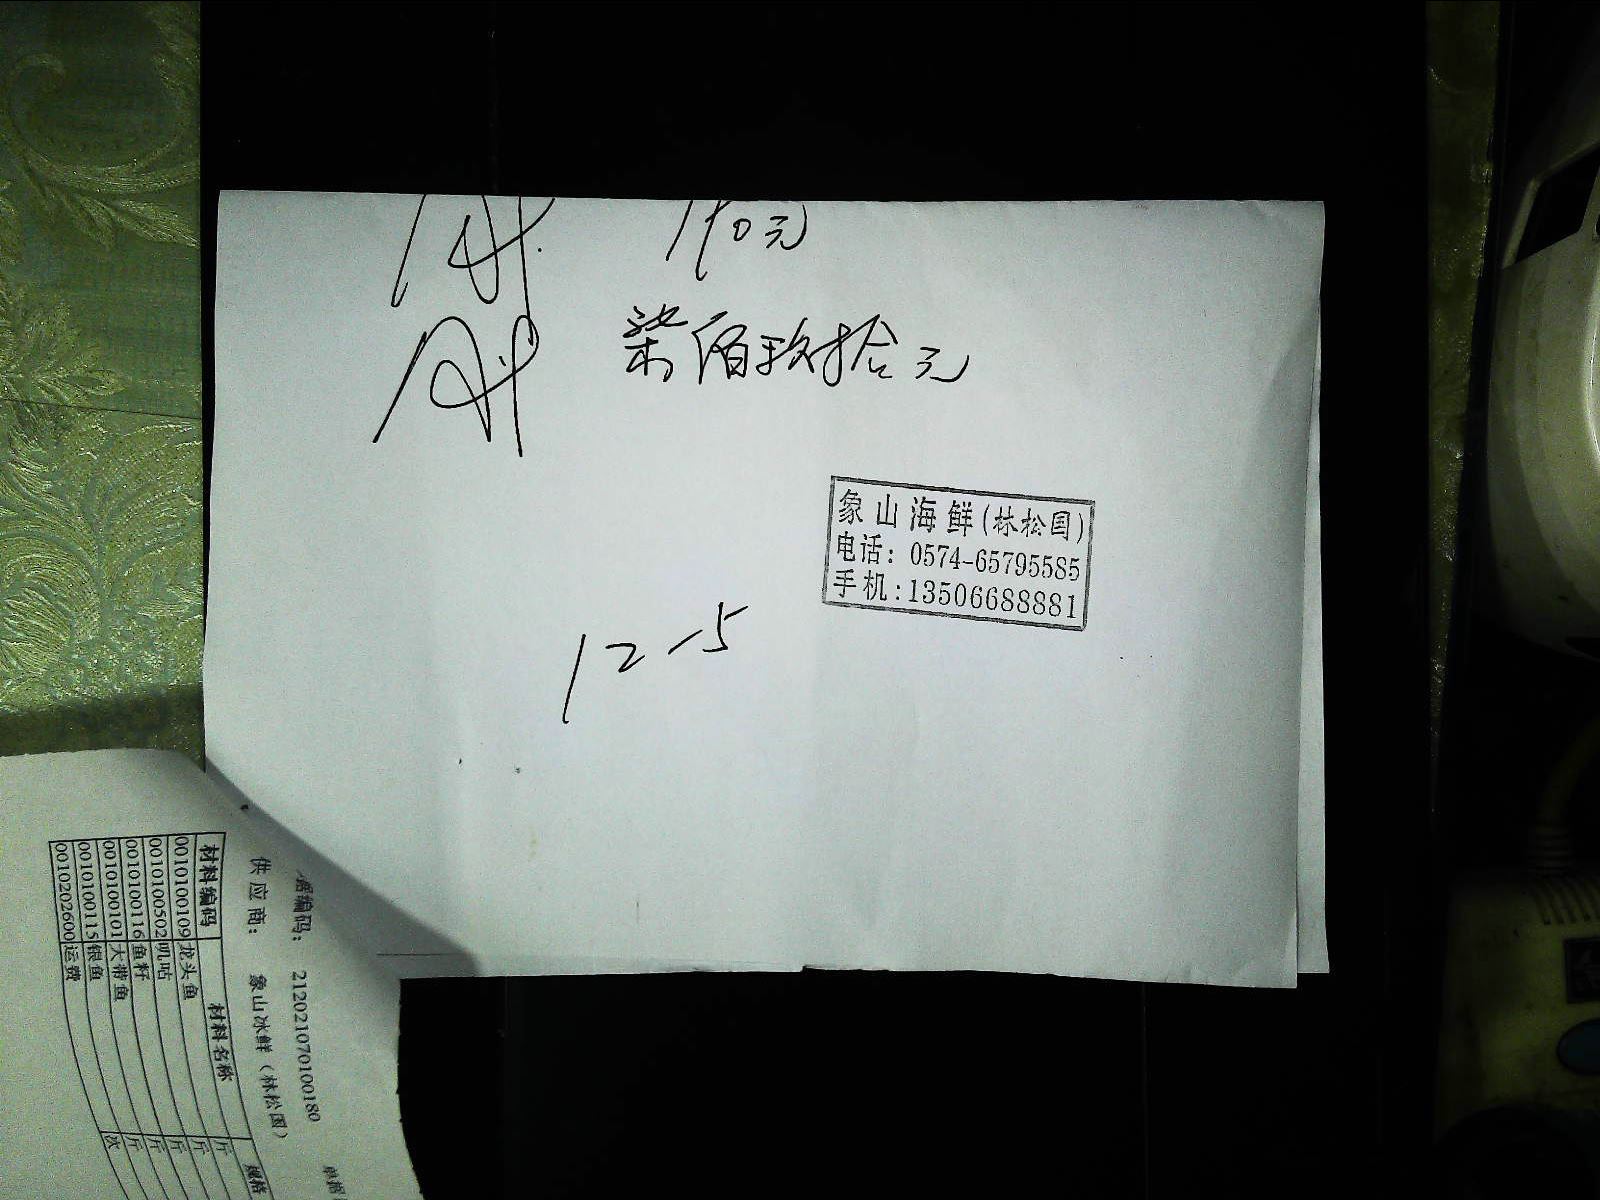 790元
柒佰玖拾元
象山海鲜(林松国)
电话: 0574-65795585
手机:13506688881
12-5
据编码: 212021070100180
单据
供应商: 象山冰鲜(林松国)
材料编码 材料名称 规格
0010100109 龙头鱼 斤
0010100502 叽咕 斤
0010100116 鱼籽 斤
0010100101 大带鱼 斤
0010100115 银鱼 斤
0010202600 运费 次